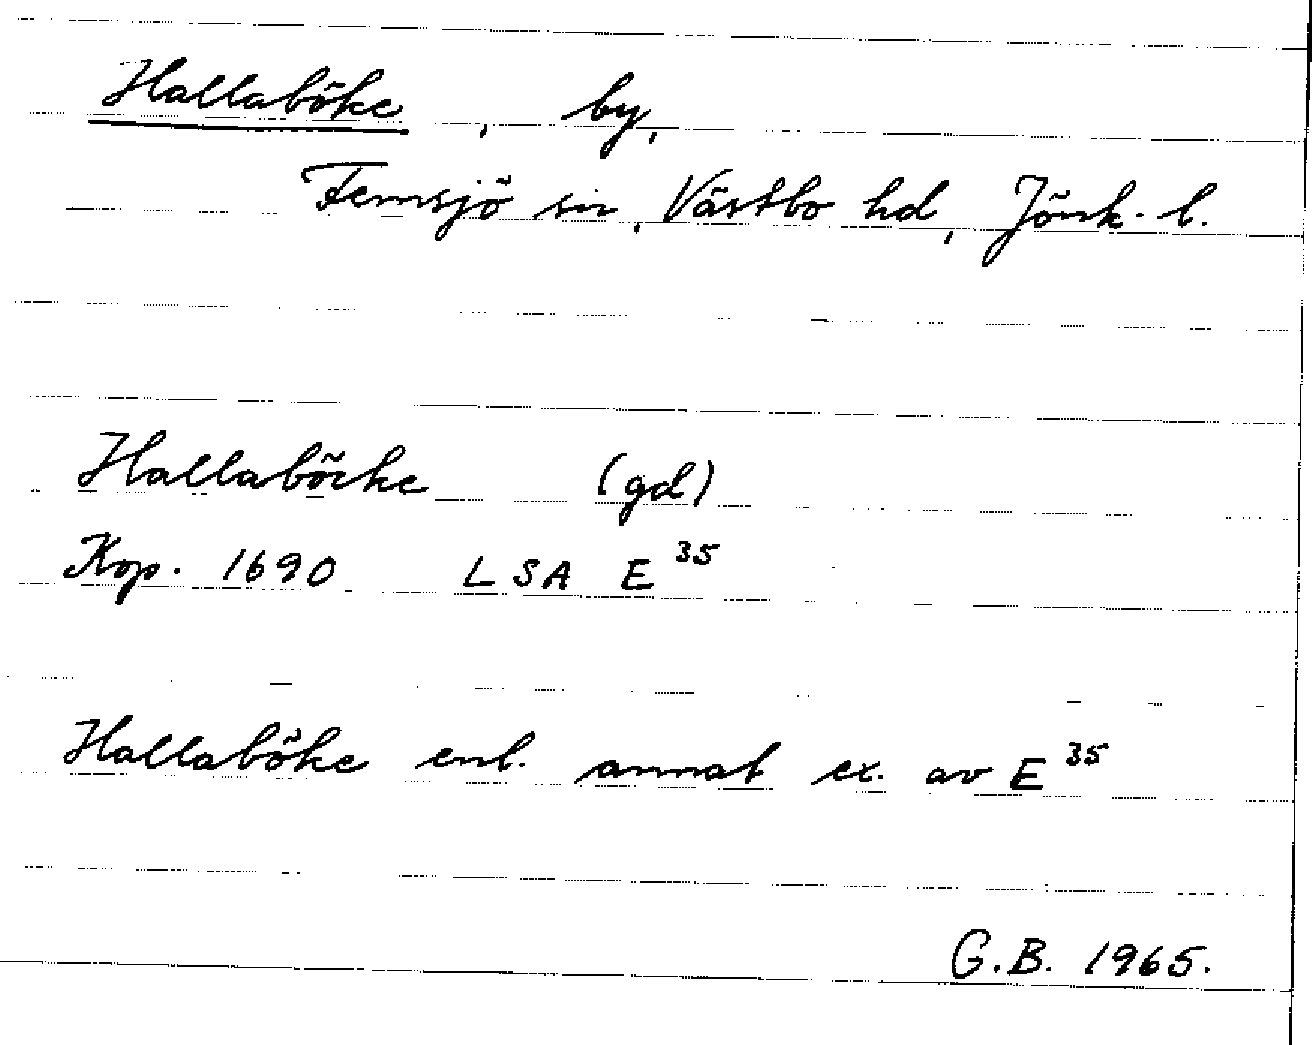 Hallaböke, by,
Femsjö sn, Västbo hd, Jönk. l.
Hallaböcke (gd)
Kop. 1690 LSA E 35
Hallaböke enl. annat ex. av E 35
G.B. 1965.